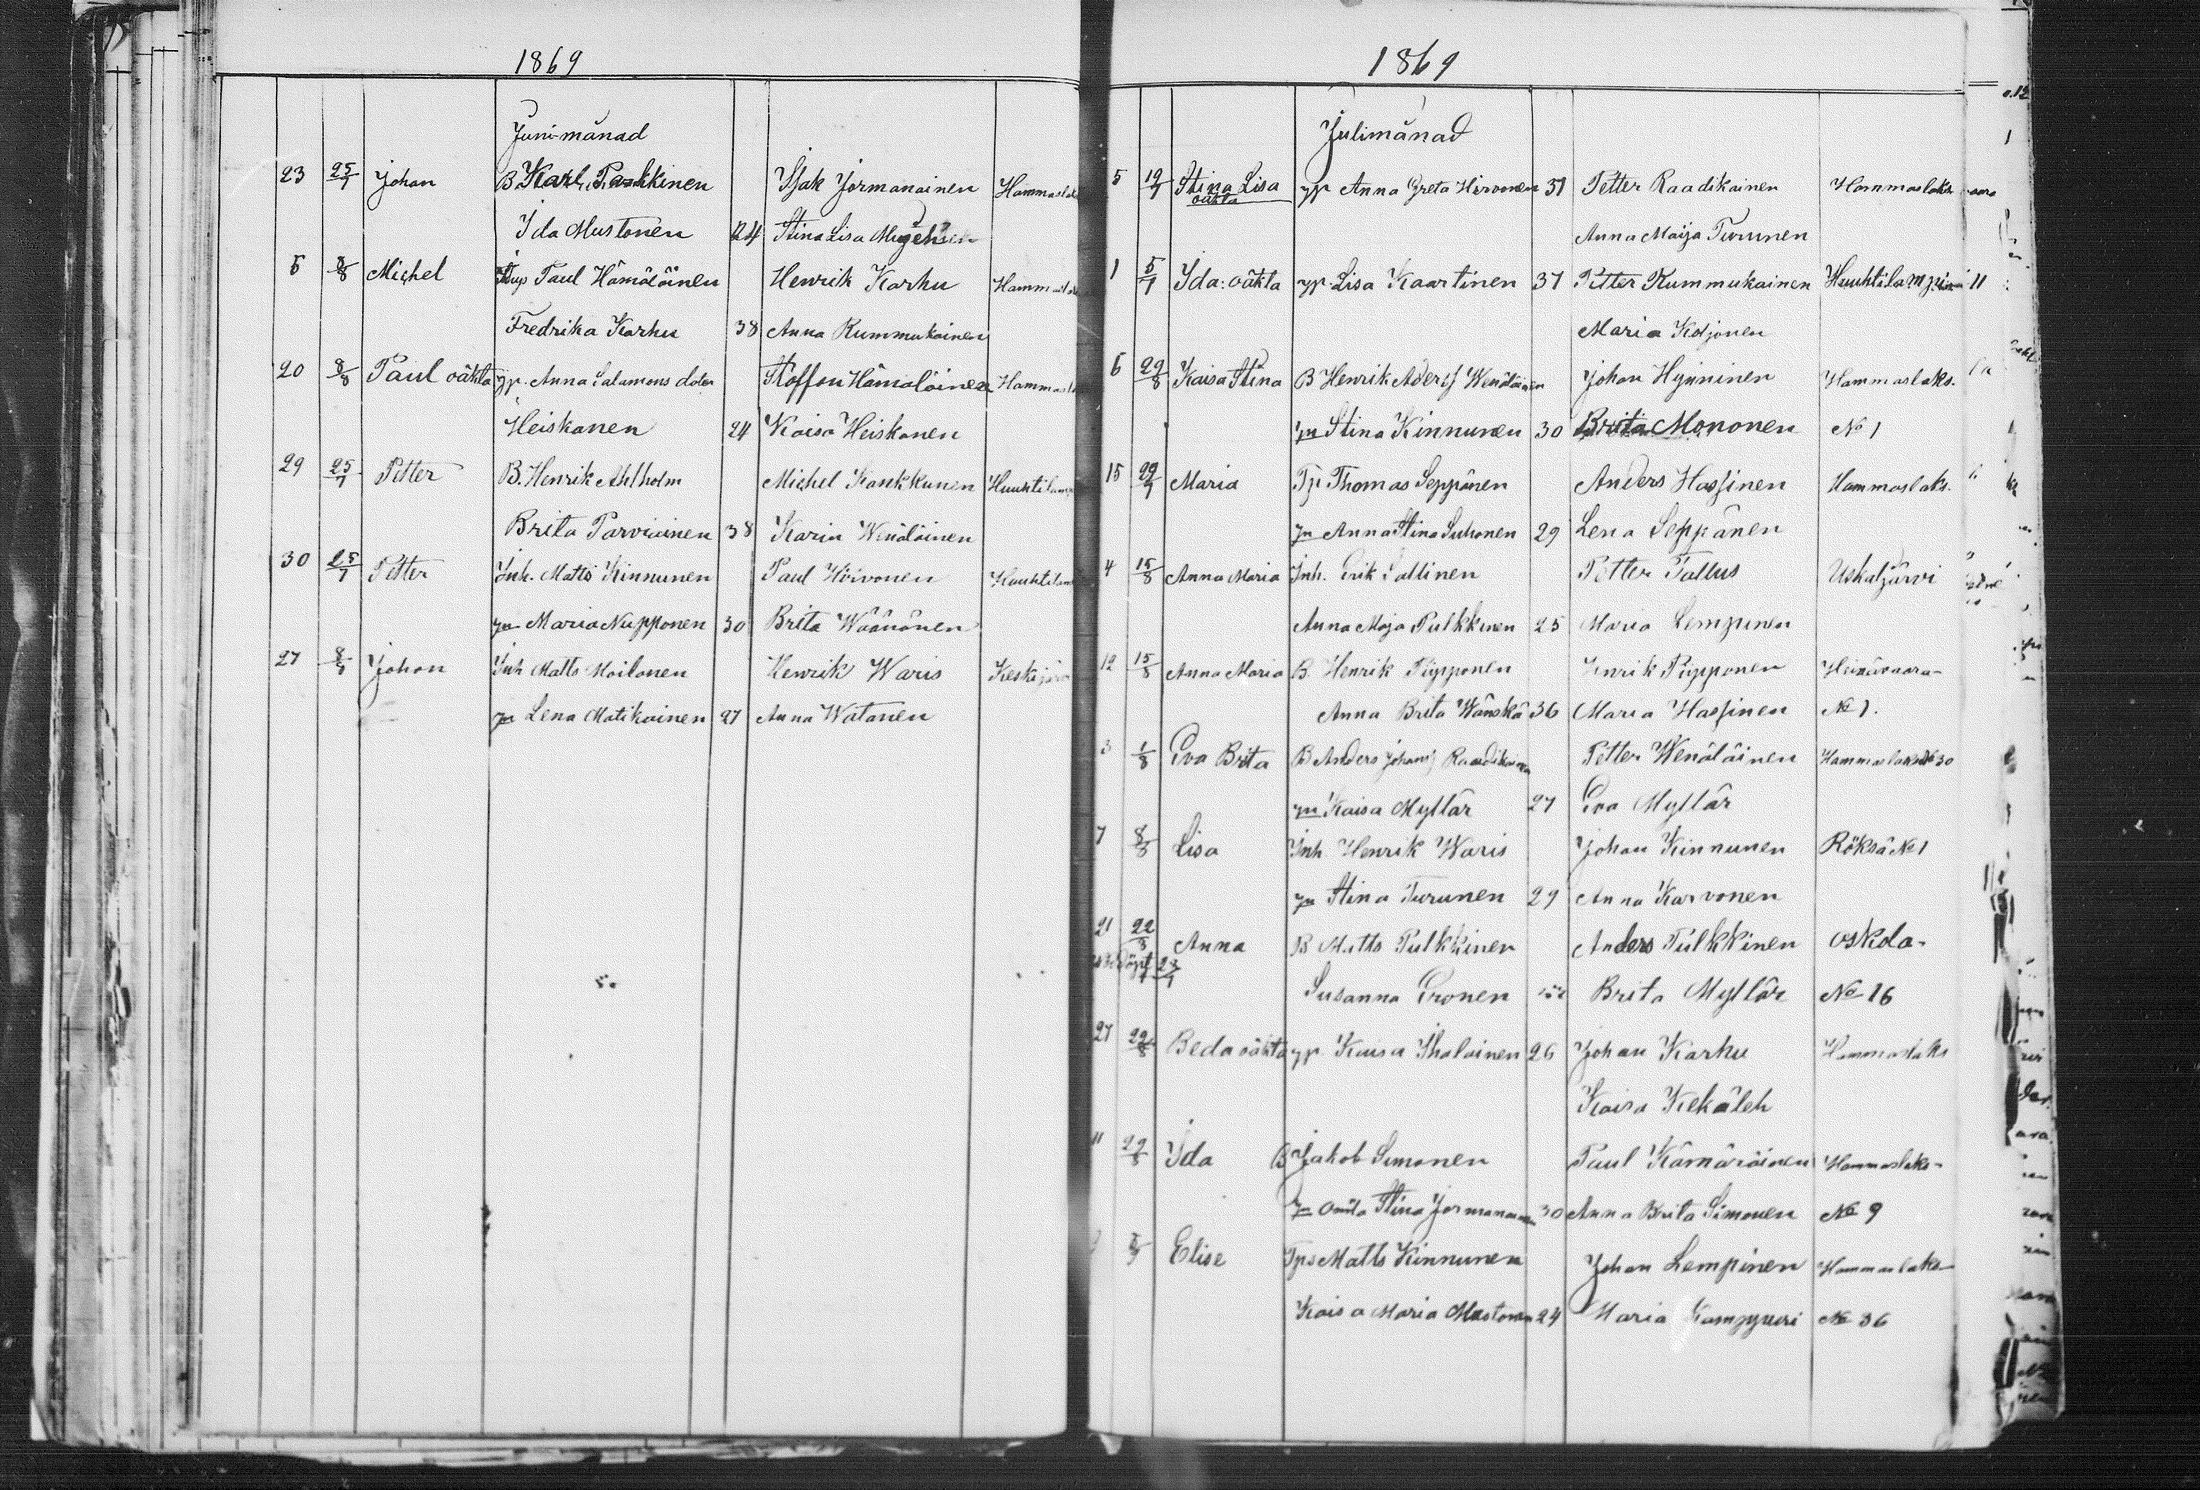 1869
Juni-månad
23 25/7 Johan B. Karl Paakkinen Isak Jormanainen Hammaslaks
Ida Mustonen 24 Stina Lisa
5 8/8 Michel Paul Hämäläinen Henrik Karhu Hammaslaks
Fredrika Karhu 38 Anna Rummukainen
20 8/8 Paul oäkta Anna Salamons doter Stoffan Hämäläinen Hammaslaks
Heiskanen 24 Kaisa Heiskanen
29 25/7 Petter B. Henrik Ahlholm Michel Kankkunen Huuhtilamp
Brita Parviainen 38 Karin Wenäläinen
30 25/7 Petter Inh. Matts Kinnunen Paul Hirvonen Huuhtilam
Maria Nupponen 30 Brita Wäänänen
27 Johan Inh Matts Moilanen Henrik Waris Keskijärv
Lena Matikainen 27 Anna Watanen
1869
Julimånad
5 Stina Lisa oäkta Anna Greta Hirvonen 31 Petter Raadikainen Hammaslaks
Anna Maija Turunen
1 Ida: oäkta Lisa Kaartinen 37 Petter Rummukainen Huuhtilampi 11
Maria Koljonen
6 29/8 Kaisa Stina B Henrik Adersf Wenäläinen Johan Hyninen Hammaslaks.
Stina Kinnunen 30 Brita Mononen No 1
15 Maria Tp Thomas Seppänen Anders Hassinen Hammaslaks.
Anna Stina Suhonen 29 Lena Seppänen
4 15/8 Anna Maria Inh. Erik Pallinen Petter Tallus Uskaljärvi
Anna Maja Pulkkinen 25 Maria Lempinen
12 15/8 Anna Maria B Henrik Piipponen Henrik Piipponen Heinävaara
Anna Brita Wänskä 36 Maria Hassinen No 1.
3 1/8 Eva Brita B Anders Johansf Raadikainen Petter Wenäläinen Hammaslaks No 30
Kaisa Myllär 27 Eva Myllär
7 8/8 Lisa Inh Henrik Waris Johan Kinnunen Röksä No 1
Stina Turunen 29 Anna Karvonen
21 Anna B Matts Pulkkinen Anders Pulkkinen Oskola
Susanna Eronen Brita Myllär No 16
27 29/8 Beda oäkta Kaisa Ihalainen 26 Johan Karhu Hammaslaks
Kaisa Kekäleh
11 29/8 Ida B Jakob Simonen Paul Kämäräinen Hammaslaks
Stina Jormanainen 30 Anna Brita Simonen No 9
Elise Matts Kinnunen Johan Lempinen Hammaslaks
Kaisa Maria Mustonen 24 Maria Kamppuri No 36